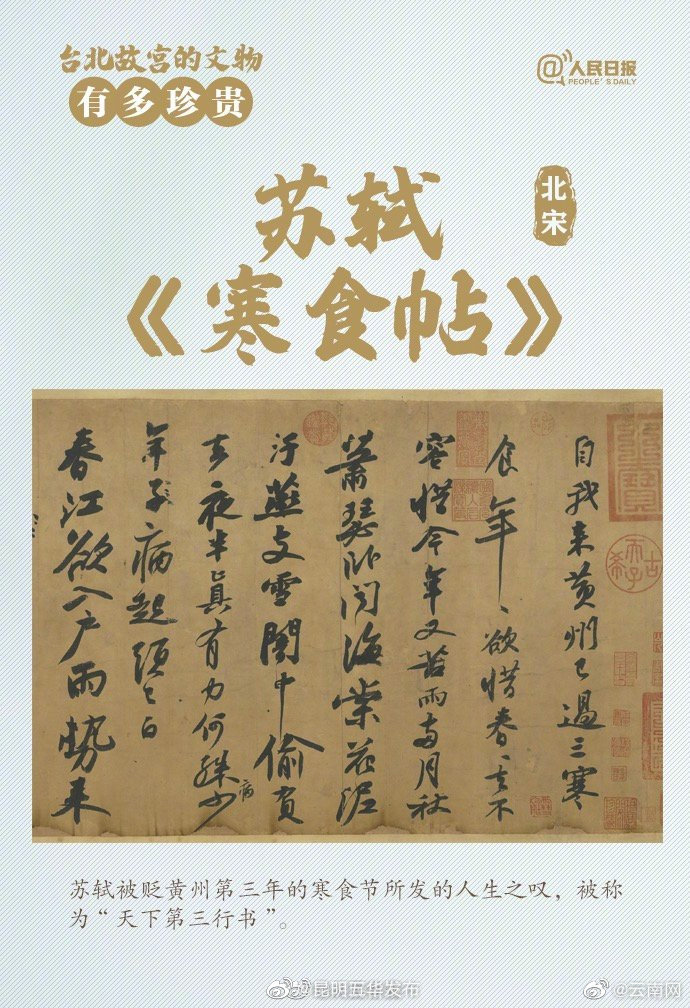 台北故宫的文物
有多珍贵
@人民日报
PEOPLE'S DAILY
北宋
苏轼
《寒食帖》
自我來黃州已過三寒
食年〻欲惜春〻去不
容惜今年又苦雨兩月秋
蕭瑟卧聞海棠花泥
汙燕支雪闇中偷負
去夜半真有力何殊少
病
年子病起頭已白
春江欲入户雨勢來
苏轼被贬黄州第三年的寒食节所发的人生之叹，被称
为“天下第三行书”。
@昆明五华发布
@云南网